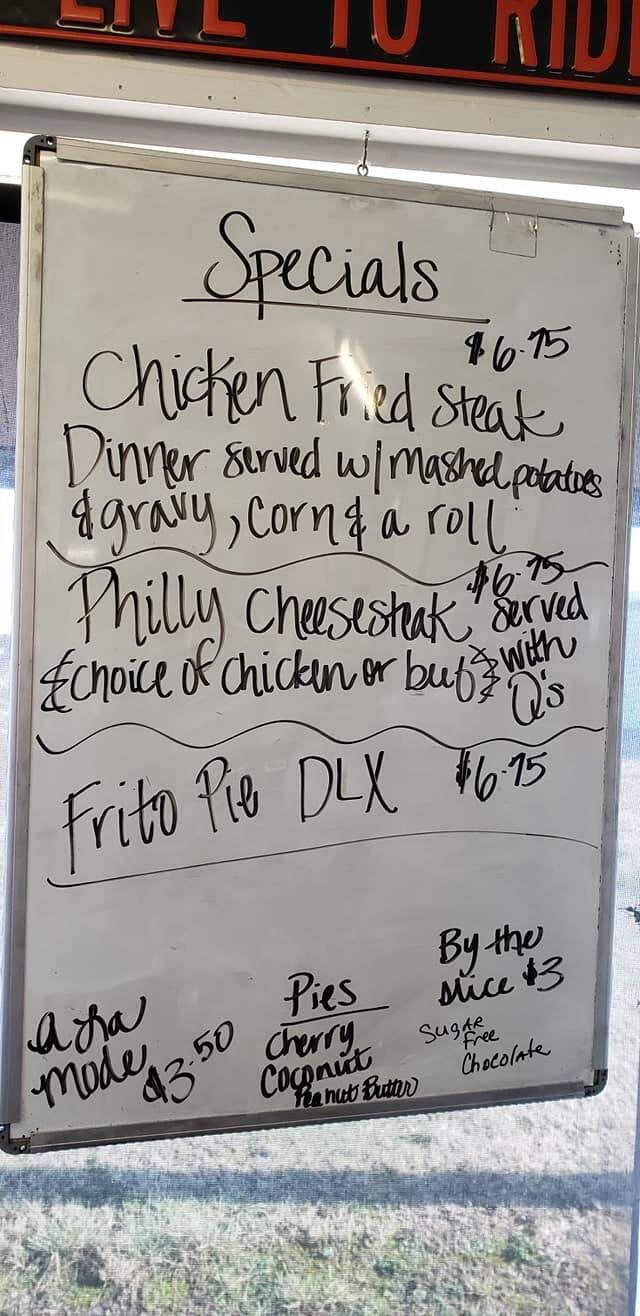 LIVE TO RIDE
Specials
$6.75
Chicken Fried Steak
Dinner served w/ mashed potatoes
& gravy, corn & a roll
Philly Cheesesteak $6.75 served
& choice of chicken or buf with
Q's
Frito Pie DLX $6.75
By the
slice $3
Pies
a la
mode $3.50
Cherry
Coconut
Peanut Butter
Sugar
Free
Chocolate